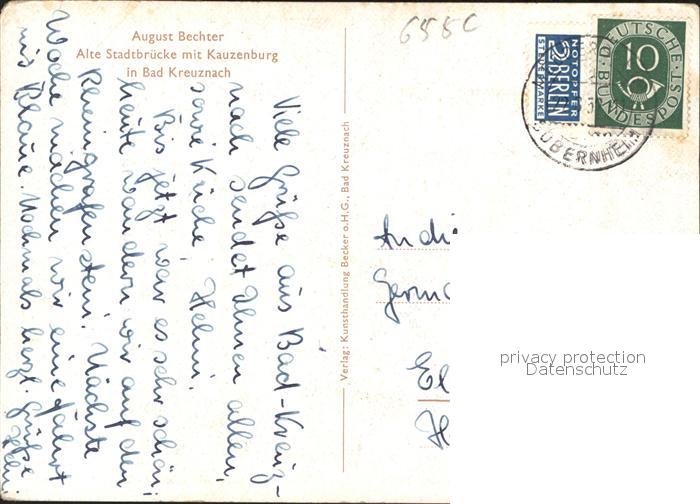 August Bechter
Alte Stadtbrücke mit Kauzenburg
in Bad Kreuznach
Viele Grüße aus Bad-Kreuz-
nach sendet Ihnen allen,
sowie Küche, Helmi.
Bis jetzt war es sehr schön,
heute wandern wir auf den
Rheingrafenstein. Nächste
Woche machen wir eine Fahrt
ins Blaue. Nochmals herzl. Grüße
Verlag: Kunsthandlung Becker o.H.G., Bad Kreuznach
NOTOPFER
2 BERLIN
STEUERMARKE
DEUTSCHE
10
BUNDESPOST
SOBERNHEIM
655C
An die
El
H
privacy protection
Datenschutz